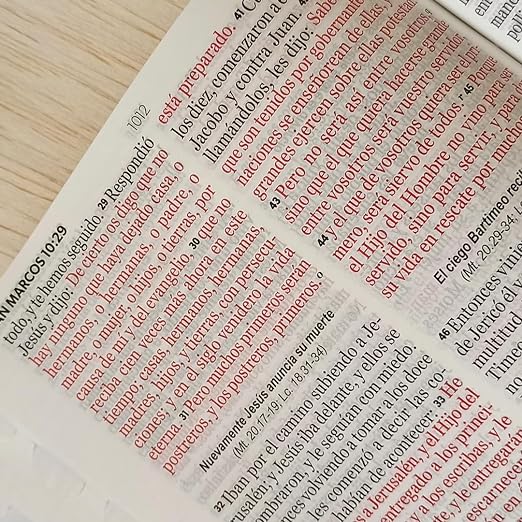 N MARCOS 10:29
todo, y te hemos seguido. 29 Respondió
Jesús y dijo: De cierto os digo que no
hay ninguno que haya dejado casa, o
hermanos, o hermanas, o padre, o
madre, o mujer, o hijos, o tierras, por
causa de mí y del evangelio, 30 que no
reciba cien veces más ahora en este
tiempo; casas, hermanos, hermanas,
madres, hijos, y tierras, con persecu-
ciones; y en el siglo venidero la vida
eterna. 31 Pero muchos primeros serán
postreros, y los postreros, primeros.
Nuevamente Jesús anuncia su muerte
(Mt. 20.17-19; Lc. 18.31-34)
32 Iban por el camino subiendo a Je-
rusalén; y Jesús iba delante, y ellos se
ombraron, y le seguían con miedo.
nces volviendo a tomar a los doce
es comenzó a decir las co-
habían de acontecer: 33 He
a Jerusalén, y el Hijo del
entregado a los princi-
a los escribas, y le
y le entregarán
escarnece
1012
está preparado. 41 C
los diez, comenzaron a
Jacobo y contra Juan.
llamándolos, les dijo: Sabé
que son tenidos por gobernante
naciones se enseñorean de ellas, y
grandes ejercen sobre ellas potesta
43 Pero no será así entre vosotros,
sino que el que quiera hacerse grande
entre vosotros será vuestro servidor,
44 y el que de vosotros quiera ser el pri-
mero, será siervo de todos. 45 Porque
el Hijo del Hombre no vino para se
servido, sino para servir, y para
su vida en rescate por mucho
El ciego Bartimeo reci
(Mt. 20.29-34;
46 Entonces vini
de Jericó él y
multitud
Time